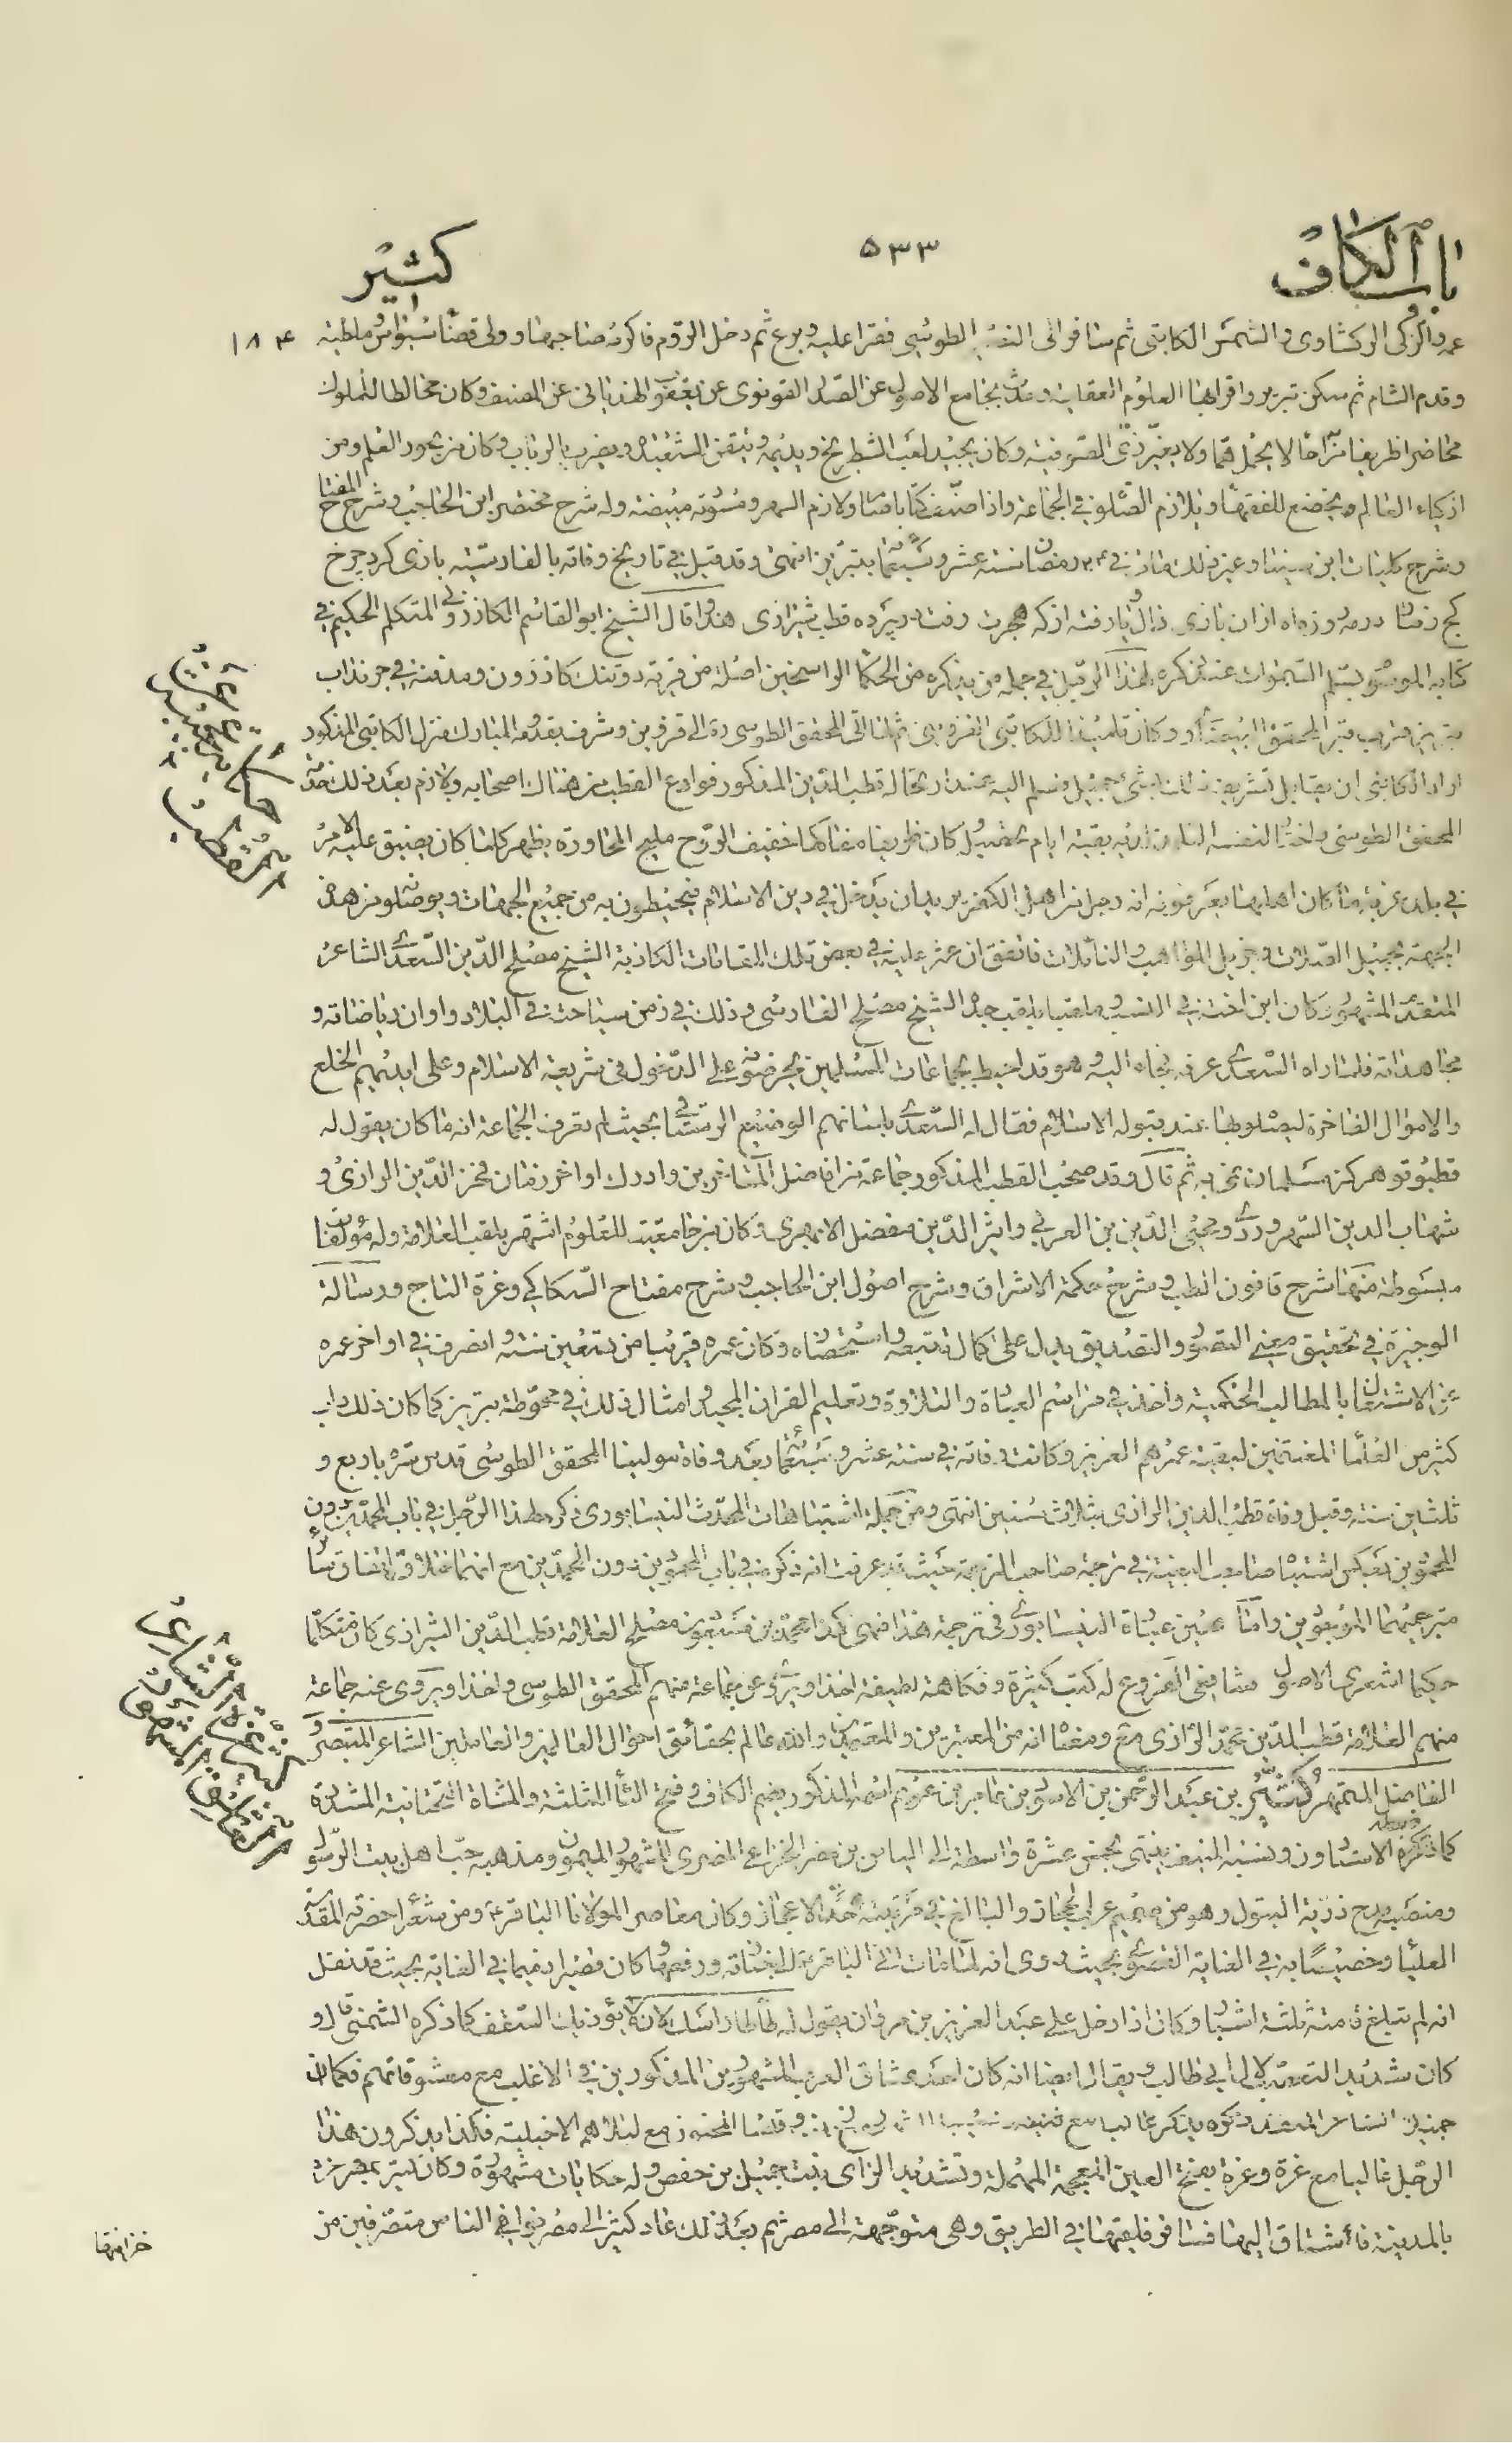 باب الكاف
٥٣٣
كثير
١٨٤
عمه والزكى الركشاوى والشمس الكاتبى ثم سافر الى النصير الطوسى فقرا عليه وبرع ثم دخل الروم فاكرمه صاحبها وولى قضاء سيواس وملطية
وقدم الشام ثم سكن تبريز واقرا بها العلوم العقلية وحدث بجامع الاصول عن الصدر القونوى عن يعقوب الهذبانى عن المصنف وكان مخالطا للملوك
محاضرا ظريفا مزاحا لا يحمل هما ولا يغير زى الصوفية وكان يجيد لعب الشطرنج ويديمه ويتقن الشعبذه ويضرب بالرباب وكان من بحور العلم ومن
اذكياء العالم ويخضع للفقهاء ويلازم الصلوة فى الجماعة واذا صنف كتابا صام ولازم السهر ومسودته مبيضته وله شرح مختصر ابن الحاجب وشرح المفتاح
وشرح كليات ابن سينا وغير ذلك مات فى ٢٤ رمضان سنه عشر وسبعمائة بتبريز انتهى وقد قيل فى تاريخ وفاته بالفارسية بازى كرد چرخ
كج رفتار در مه روزه اه ازان بازى ذال يا رفته از كه هجرت رفت در پرده قطب شيرازى هذا وقال الشيخ ابو القاسم الكازرونى المتكلم الحكيم فى
كتابه الموسوم بسلم السموات عند ذكره لهذا الرجل فى جمله من يذكره من الحكماء الراسخين اصله من قرية دوتنك كازرون ومدفنه فى جرنداب
تبريز قريب قبر المحقق البيضاوى وكان تلميذا للكاتبى القزوينى ثم لما اتى المحقق الطوسى ره الى قزوين وشرف بقدومه المبارك منزل الكاتبى المذكور
اراد الكاتبى ان يقابل تشريفه ذلك بشئ جميل فسلم اليه عند ارتحاله قطب الدين المذكور فوادع القطب من هناك اصحابه ولازم بعد ذلك خدمة
المحقق الطوسى واختار لنفسه التلمذ لديه بقية ايام تحصيله كان ظريفا مفاكها خفيف الروح مليح المحاورة يظهر كلما كان يضيق عليه الامر
فى بلد غربة ما كان اهلها يعرفونه انه رجل من اهل الكفر يريد ان يدخل فى دين الاسلام فيحيطون به من جميع الجهات ويوصلونه من هذه
الجهة بجميل الصلات وجزيل المواهب والنائلات فاتفق ان عثر عليه فى بعض تلك المقامات الكاذبة الشيخ مصلح الدين السعدى الشاعر
المتقدم المشهور وكان ابن اخته فى النسب وملقبا بلقب جده الشيخ مصلح الفارسى وذلك فى زمن سياحته فى البلاد واوان رياضاته و
مجاهداته فلما راه السعدى عرفه فجاء اليه وهو قد احيط بجماعات المسلمين يحرضونه على الدخول فى شريعة الاسلام وعلى ايديهم الخلع
والاموال الفاخرة ليصلوه بها عند قبوله الاسلام فقال له السعدى بلسانهم الوضيع الرستاقى بحيث لم يعرف الجماعة انه ما كان يقول له
قطبو تو هرگز مسلمان نخوابه ثم قال وقد صحب القطب المذكور جماعة من افاضل المتاخرين وادرك اواخر زمان فخر الدين الرازى و
شهاب الدين السهروردى ومحيى الدين بن العربى واثير الدين مفضل الابهرى وكان من جامعيته للعلوم اشتهر بلقب العلامة وله مؤلفات
مبسوطة منها شرح قانون الطب وشرح حكمة الاشراق وشرح اصول ابن الحاجب وشرح مفتاح السكاكى وغرة التاج ورسالة
الوجيزة فى تحقيق معنى التصور والتصديق يدل على كمال تتبعه واستحضاره وكان عمره قريبا من تسعين سنة وانصرف فى اواخر عمره
عن الاشتغال بالمطالب الحكمية واخذ فى مراسم العبادة والتلاوة وتعليم القران المجيد وامثال ذلك فى محوطة تبريز كما كان ذلك داب
كثير من العلماء المغتنمين لبقية عمرهم العزيز وكانت وفاته فى سنة عشر وسبعمائة بعد وفاة مولينا المحقق الطوسى قدس سره باربع و
ثلثين سنة وقبل وفاة قطب الدين الرازى بثلاث سنين انتهى ومن جملة اشتباهات المحدث النيسابورى ذكره لهذا الرجل فى باب المحمدين دون
المحمودين بعكس اشتباه صاحب البغية فى ترجمة صاحب الترجمة حيث قد عرفت انه ذكره فى باب المحمودين دون المحمدين مع انهما خلاف اتفاق سائر
مترجميهما المرموقين واما عين عبارة النيسابورى فى ترجمة هذا فهى كذا محمد بن مسعود بن مصلح العلامة قطب الدين الشيرازى كان متكلما
حكيما اشعرى الاصول شافعى الفروع له كتب كثيرة وفكاهة لطيفة اخذ ويروى عن جماعة منهم المحقق الطوسى واخذ ويروى عنه جماعة
منهم العلامة قطب الدين محمد الرازى مع ومفاده انه من المعتبرين والمعتمدين والله عالم بحقائق احوال العالمين والعاملين الشاعر المتبصر و
الفاضل المتمهر كثير بن عبد الرحمن بن الاسود بن عامر بن عويمر اسمه المذكور بضم الكاف وفتح الثاء المثلثة والمثناة التحتانية المشددة
كما ذكره الاستادون ونسبه المنيف ينتهى بخمس عشرة واسطة الى الياس بن مضر الخزاعى المضرى المشهور الميمون ومذهبه حب اهل بيت الرسول
ومنصبه مدح ذرية البتول وهو من صميم عرب الحجاز والبالغ فى مرتبته حد الاعجاز وكان معاصر المولانا الباقر ع ومن شعراء حضرته المقدسة
العليا وخصيصا به فى الغاية القصوى بحيث روى انه لما مات اتى الباقر ع الى جنازته ورفعها وكان قصيرا دميما فى الغاية بحيث قد نقل
انه لم تبلغ قامته ثلثة اشبار وكان اذا دخل على عبد العزيز بن مروان يقول له طأطا راسك لئلا يؤذيك السقف كما ذكره الشمنى قال و
كان شديد التعصب لال ابى طالب ويقال ايضا انه كان احد عشاق العرب المشهورين المذكورين فى الاغلب مع معشوقاتهم فكما ان
جميل الشاعر المتقدم ذكره يذكر غالبا مع وقيس المجنون مع ليلاهم الاخيلية فكذا يذكرون هذا
الرجل غالبا مع عزة وعزة بفتح العين المعجمة المهملة وتشديد الزاى بنت جميل بن حفص وله حكايات مشهورة وكان كثير بمصر عزه
بالمدينة فاشتاق اليها فسافر فلقيها فى الطريق وهى متوجهة الى مصر ثم بعد ذلك عاد كثير الى مصر فوافى الناس منصرفين من